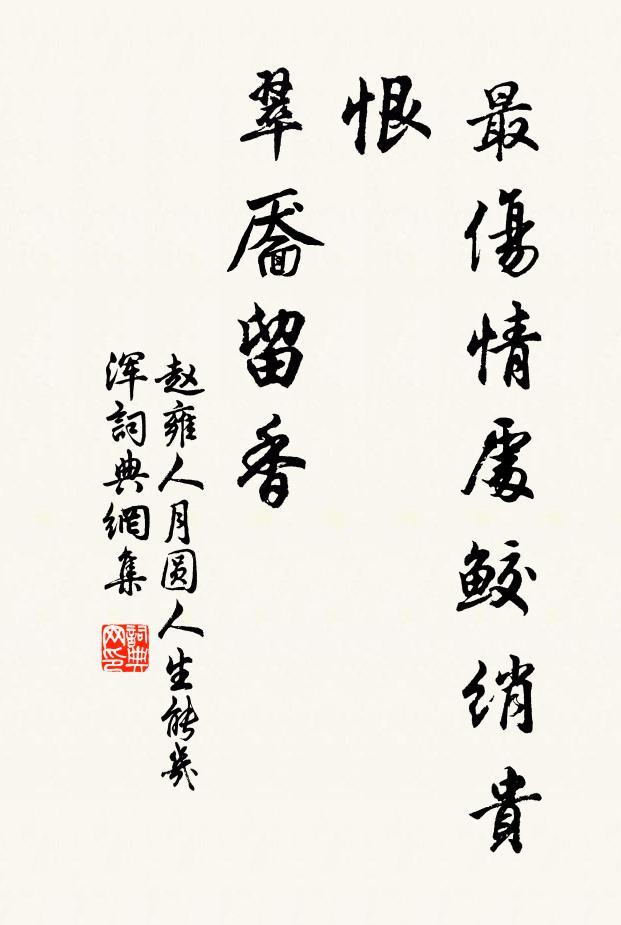 最傷情處鮫綃貴
恨
翠靨留香
赵雍人月圆人生能幾
浑詞典網集
詞典网印